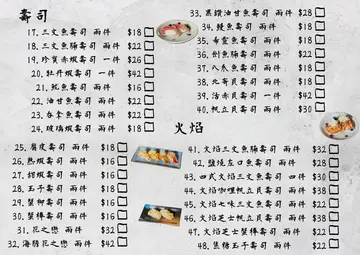 壽司
17. 三文魚壽司 兩件 $18
18. 三文魚腩壽司 兩件 $22
19. 珍寶赤蝦壽司 一件 $26
20. 牡丹蝦壽司 一件 $42
21. 魷魚壽司 兩件 $16
22. 油甘魚壽司 兩件 $22
23. 吞拿魚壽司 兩件 $22
24. 玻璃蝦壽司 兩件 $24
25. 腐皮壽司 兩件 $16
26. 熟蝦壽司 兩件 $18
27. 甜蝦壽司 兩件 $18
28. 玉子壽司 兩件 $16
29. 蟹柳壽司 兩件 $16
30. 蟹棒壽司 兩件 $18
31. 花之戀 兩件 $32
32. 海膽花之戀 兩件 $42
33. 黑鑽油甘魚壽司 兩件 $28
34. 鰻魚壽司 兩件 $18
35. 希靈魚壽司 兩件 $18
36. 劍魚腩壽司 兩件 $22
37. 八爪魚壽司 兩件 $18
38. 北寄貝壽司 兩件 $18
39. 活赤貝壽司 一件 $22
40. 帆立貝壽司 兩件 $32
火焰
41. 火焰三文魚壽司 兩件 $32
42. 鹽燒左口魚壽司 兩件 $32
43. 四式火焰三文魚壽司 四件 $32
44. 火焰咖喱帆立貝壽司 兩件 $38
45. 火焰七味三文魚壽司 兩件 $28
46. 火焰芝士帆立貝壽司 兩件 $38
47. 火焰芝士蟹棒壽司 兩件 $22
48. 焦糖玉子壽司 兩件 $28